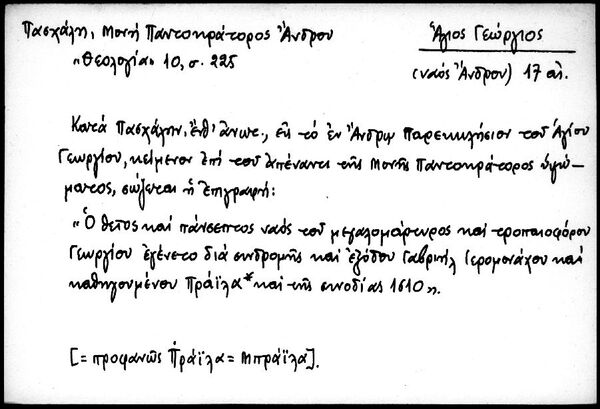 Πασχάλη, Μονή Παντοκράτορος Ἄνδρου
Ἅγιος Γεώργιος
«Θεολογία» 10, σ. 225
(ναός Ἄνδρου) 17 αἰ.
Κατά Πασχάλην, ἐνθ' ἀνωτ., εἰς τό ἐν Ἄνδρῳ Παρεκκλήσιον τοῦ Ἁγίου
Γεωργίου, κείμενον ἐπί τοῦ ἀπέναντι τῆς Μονῆς Παντοκράτορος ὑψώ-
ματος, σώζεται ἡ ἐπιγραφή:
«Ὁ θεῖος καί πάνσεπτος ναός τοῦ μεγαλομάρτυρος καί τροπαιοφόρου
Γεωργίου ἐγένετο διά συνδρομῆς καί ἐξόδου Γαβριήλ ἱερομονάχου καί
καθηγουμένου Πράϊλα* καί τῆς συνοδίας 1610».
[= προφανῶς Πράϊλα = Μπράϊλα].